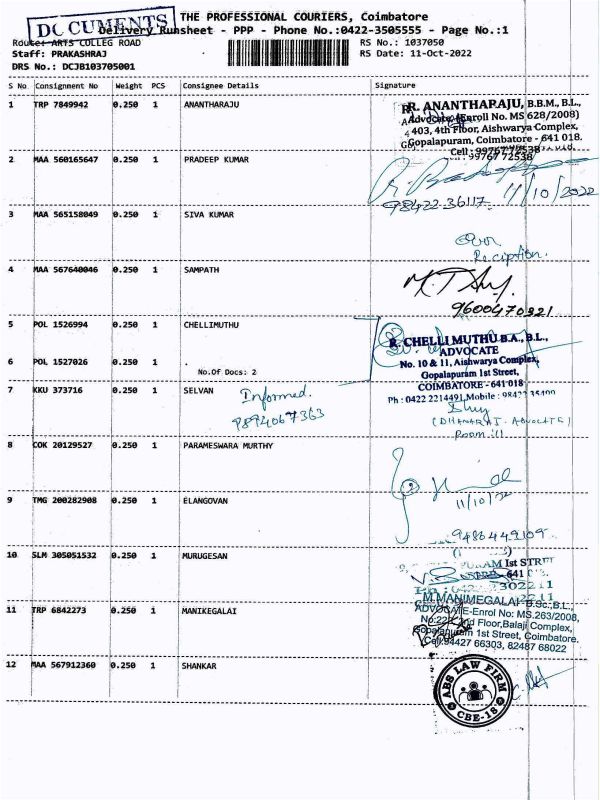 DOCUMENTS
THE PROFESSIONAL COURIERS, Coimbatore
Delivery Runsheet - PPP - Phone No.:0422-3505555 - Page No.:1
Route: ARTS COLLEG ROAD
Staff: PRAKASHRAJ
DRS No.: DCJB103705001
RS No.: 1037050
RS Date: 11-Oct-2022
S No Consignment No Weight PCS Consignee Details Signature
1 TRP 7849942 0.250 1 ANANTHARAJU
R. ANANTHARAJU, B.B.M., B.L.,
Advocate (Enroll No. MS 628/2008)
403, 4th Floor, Aishwarya Complex,
Gopalapuram, Coimbatore - 641 018.
Cell : 99767 72538
2 MAA 560165647 0.250 1 PRADEEP KUMAR
11/10/2022
98422 36117
3 MAA 565158049 0.250 1 SIVA KUMAR
4 MAA 567640046 0.250 1 SAMPATH
9600470321
5 POL 1526994 0.250 1 CHELLIMUTHU
R. CHELLI MUTHU B.A., B.L.,
ADVOCATE
No. 10 & 11, Aishwarya Complex,
Gopalapuram 1st Street,
COIMBATORE - 641 018
Ph : 0422 2214491, Mobile :
6 POL 1527026 0.250 1
No.Of Docs: 2
7 KKU 373716 0.250 1 SELVAN
Informed.
9894067363
(DHANARAJ. ADVOCATE)
Room
8 COK 20129527 0.250 1 PARAMESWARA MURTHY
11/10/22
9 TMG 200282908 0.250 1 ELANGOVAN
9486449109
10 SLM 305051532 0.250 1 MURUGESAN
Ist STREET
11 TRP 6842273 0.250 1 MANIKEGALAI
M.MANIMEGALAI B.Sc.,B.L.,
ADVOCATE-Enrol No: MS.263/2008,
Floor,Balaji Complex,
Gopalapuram 1st Street, Coimbatore.
Cell:94427 66303, 82487 68022
12 MAA 567912360 0.250 1 SHANKAR
ABS LAW FIRM
CBE-18